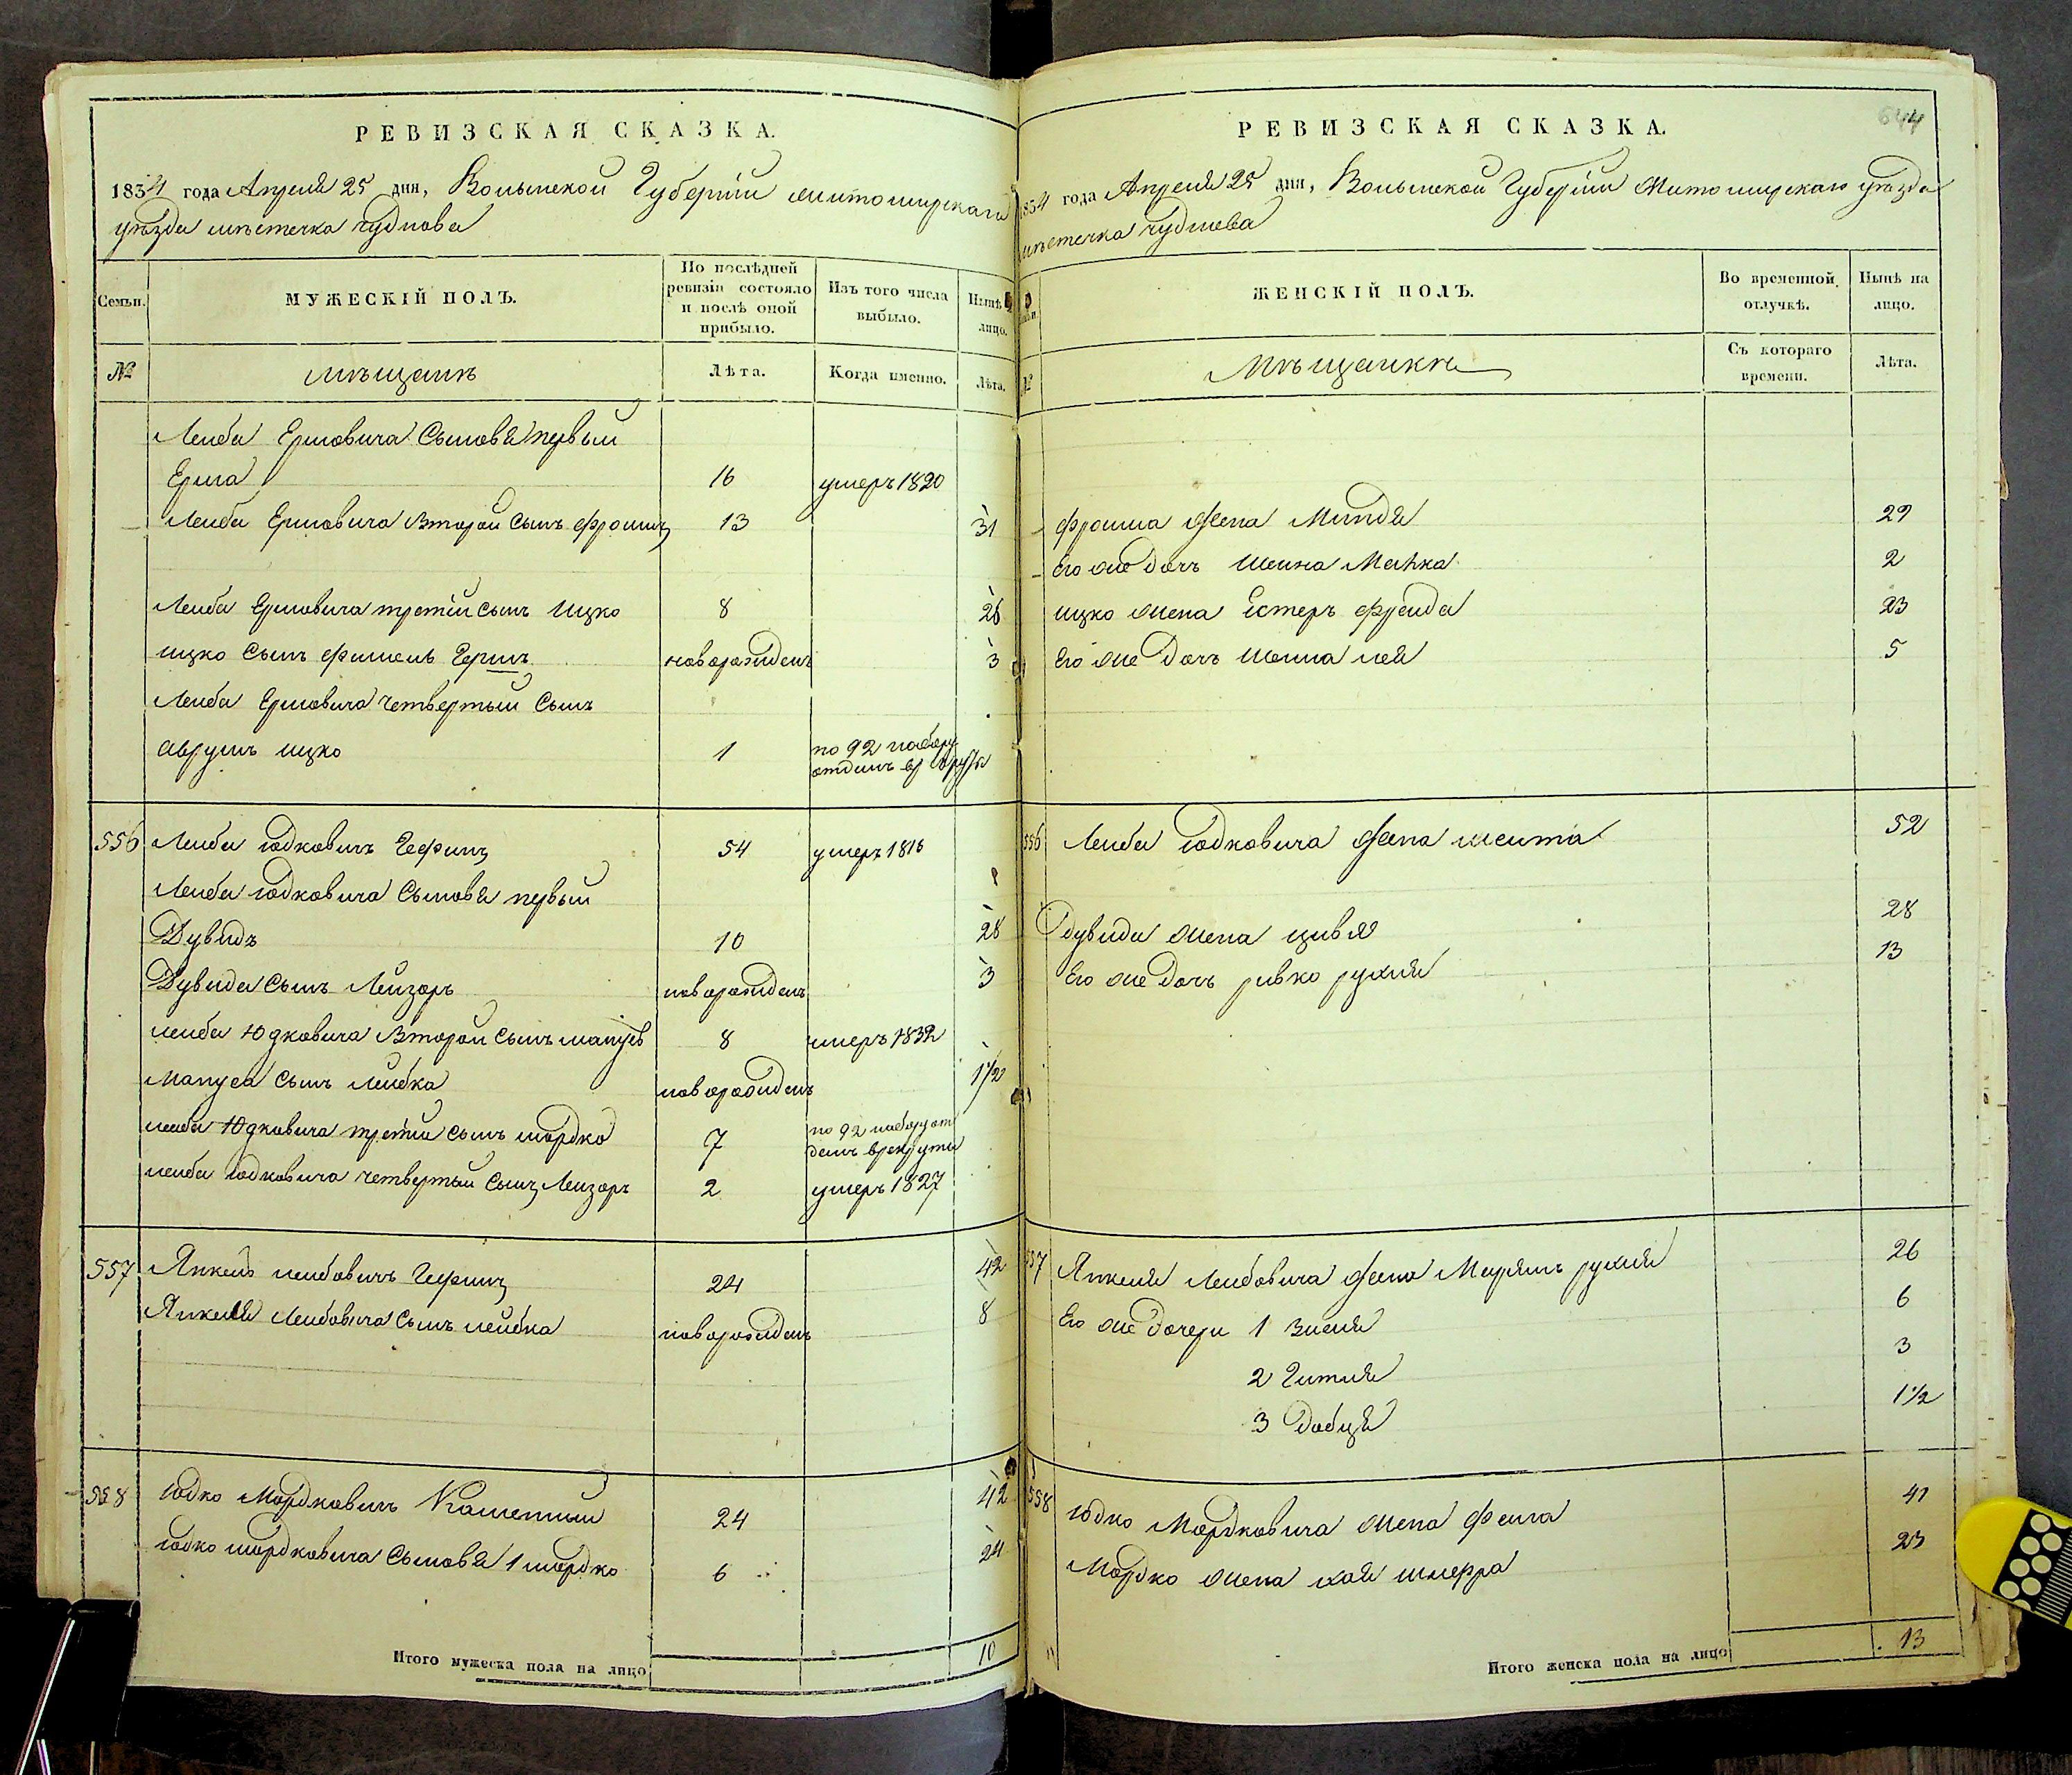 РЕВИЗСКАЯ СКАЗКА.
1834 года Апреля 25 дня, Волынской Губернии Житомирскаго
уѣзда мѣстечка Чуднова
Семьи.
МУЖЕСКІЙ ПОЛЪ.
По послѣдней ревизіи состояло и послѣ оной прибыло.
Изъ того числа выбыло.
Нынѣ на лицо.
№
мѣщанъ
Лѣта.
Когда именно.
Лѣта.
Лейба Ершовича Сыновья первый
Ерша 16 умеръ 1820
Лейба Ершовича Второй сынъ Фроимъ 13 31
Лейба Ершовича третій сынъ Ицко 8 26
Ицко сынъ Фишель Гершъ новорожденъ 3
Лейба Ершовича четвертый сынъ
Аврумъ Ицко 1 по 92 набору
отданъ в рекруты
556 Лейба Юдковичъ 54 умеръ 1816
Лейба Юдковича Сыновья первый
Дувидъ 10 28
Дувида сынъ Лейзоръ новорожденъ 3
Лейба Юдковича Второй сынъ 8 умеръ 1832
Мануса сынъ Лейбка новорожденъ 1 1/2
Лейба Юдковича третій сынъ Мордко 7 по 92 набору от
данъ в рекруты
Лейба Юдковича четвертый сынъ Лейзоръ 2 умеръ 1827
557 Янкель Лейбовичъ 24 42
Янкеля Лейбовича сынъ Лейбка новорожденъ 8
558 Юдко Мордковичъ 24 42
Юдко Мордковича Сыновья 1 Мордко 6 24
Итого мужеска пола на лицо 10
644
РЕВИЗСКАЯ СКАЗКА.
1834 года Апреля 25 дня, Волынской Губерніи Житомирскаго уѣзда
мѣстечка Чуднова
ЖЕНСКІЙ ПОЛЪ.
Во временной отлучкѣ.
Нынѣ на лицо.
№
Мѣщанки
Съ котораго времени.
Лѣта.
Фроима жена Миндя 29
Его же дочъ Шейна Малка 2
Ицко жена Естеръ Фрейда 23
Его же дочъ Шейна Лея 5
556 Лейба Юдковича жена 52
Дувида жена Цивья 28
Его же дочъ Ривко Рухля 13
557 Янкеля Лейбовича жена Марьямъ Рухля 26
Его же дочери 1 6
2 Гитля 3
3 Добця 1 1/2
558 Юдко Мордковича жена Фейга 41
Мордко жена Хая 23
Итого женска пола на лицо 13